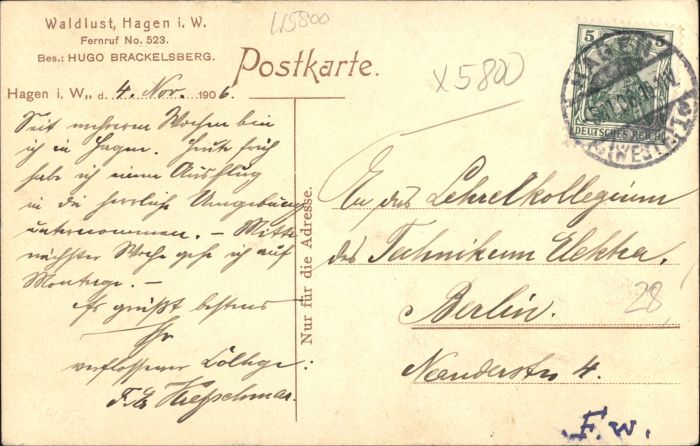 Waldlust, Hagen i. W.
Fernruf No. 523.
Bes.: HUGO BRACKELSBERG.
L15800
Postkarte.
X5800
5 5
HAGEN
DEUTSCHES REICH
(WESTF.)
Hagen i. W., d. 4. Nov. 1906.
Seit mehreren Wochen bin
ich in Hagen. Heute früh
habe ich einen Ausflug
in die herrliche Umgebung
unternommen. – Mitte
nächster Woche gehe ich auf
Montage. –
Es grüßt bestens
Ihr
verflossener College:
Nur für die Adresse.
An das Lehrerkollegium
des Technikum Elektra.
Berlin.
Neanderstr. 4.
28
F.W.